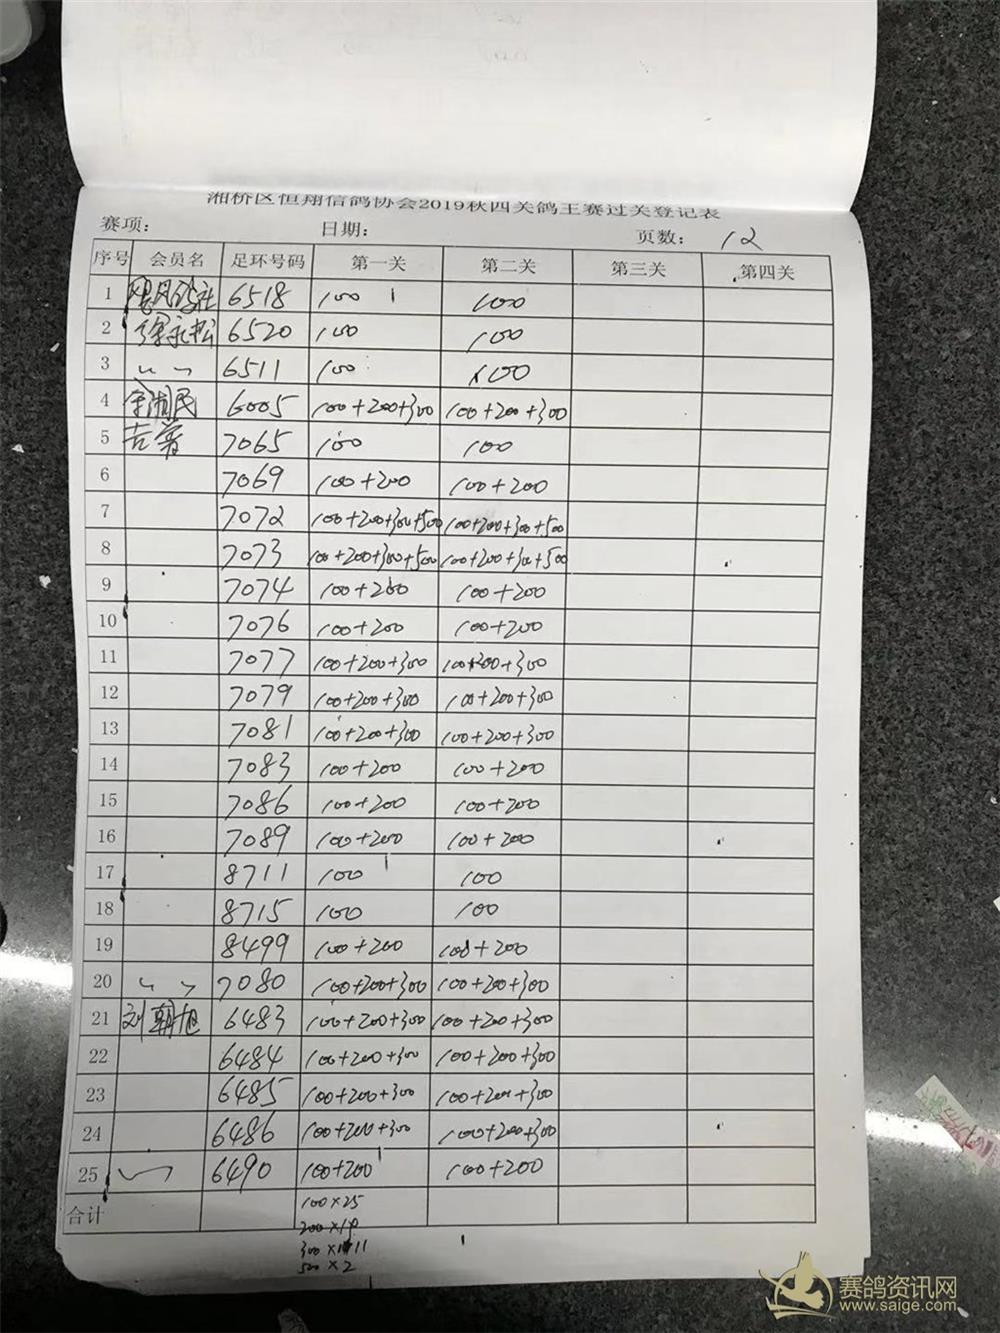 湘桥区恒翔信鸽协会2019秋四关鸽王赛过关登记表
赛项： 日期： 页数： 12
序号 会员名 足环号码 第一关 第二关 第三关 第四关
1 6518 100 100
2 徐永松 6520 100 100
3 〃 6511 100 100
4 6005 100+200+300 100+200+300
5 7065 100 100
6 7069 100+200 100+200
7 7072 100+200+300+500 100+200+300+500
8 7073 100+200+300+500 100+200+300+500
9 7074 100+200 100+200
10 7076 100+200 100+200
11 7077 100+200+300 100+200+300
12 7079 100+200+300 100+200+300
13 7081 100+200+300 100+200+300
14 7083 100+200 100+200
15 7086 100+200 100+200
16 7089 100+200 100+200
17 8711 100 100
18 8715 100 100
19 8499 100+200 100+200
20 〃 7080 100+200+300 100+200+300
21 刘朝旭 6483 100+200+300 100+200+300
22 6484 100+200+300 100+200+300
23 6485 100+200+300 100+200+300
24 6486 100+200+300 100+200+300
25 〃 6490 100+200 100+200
合计 100×25
200×19
300×11
500×2
赛鸽资讯网
www.saige.com